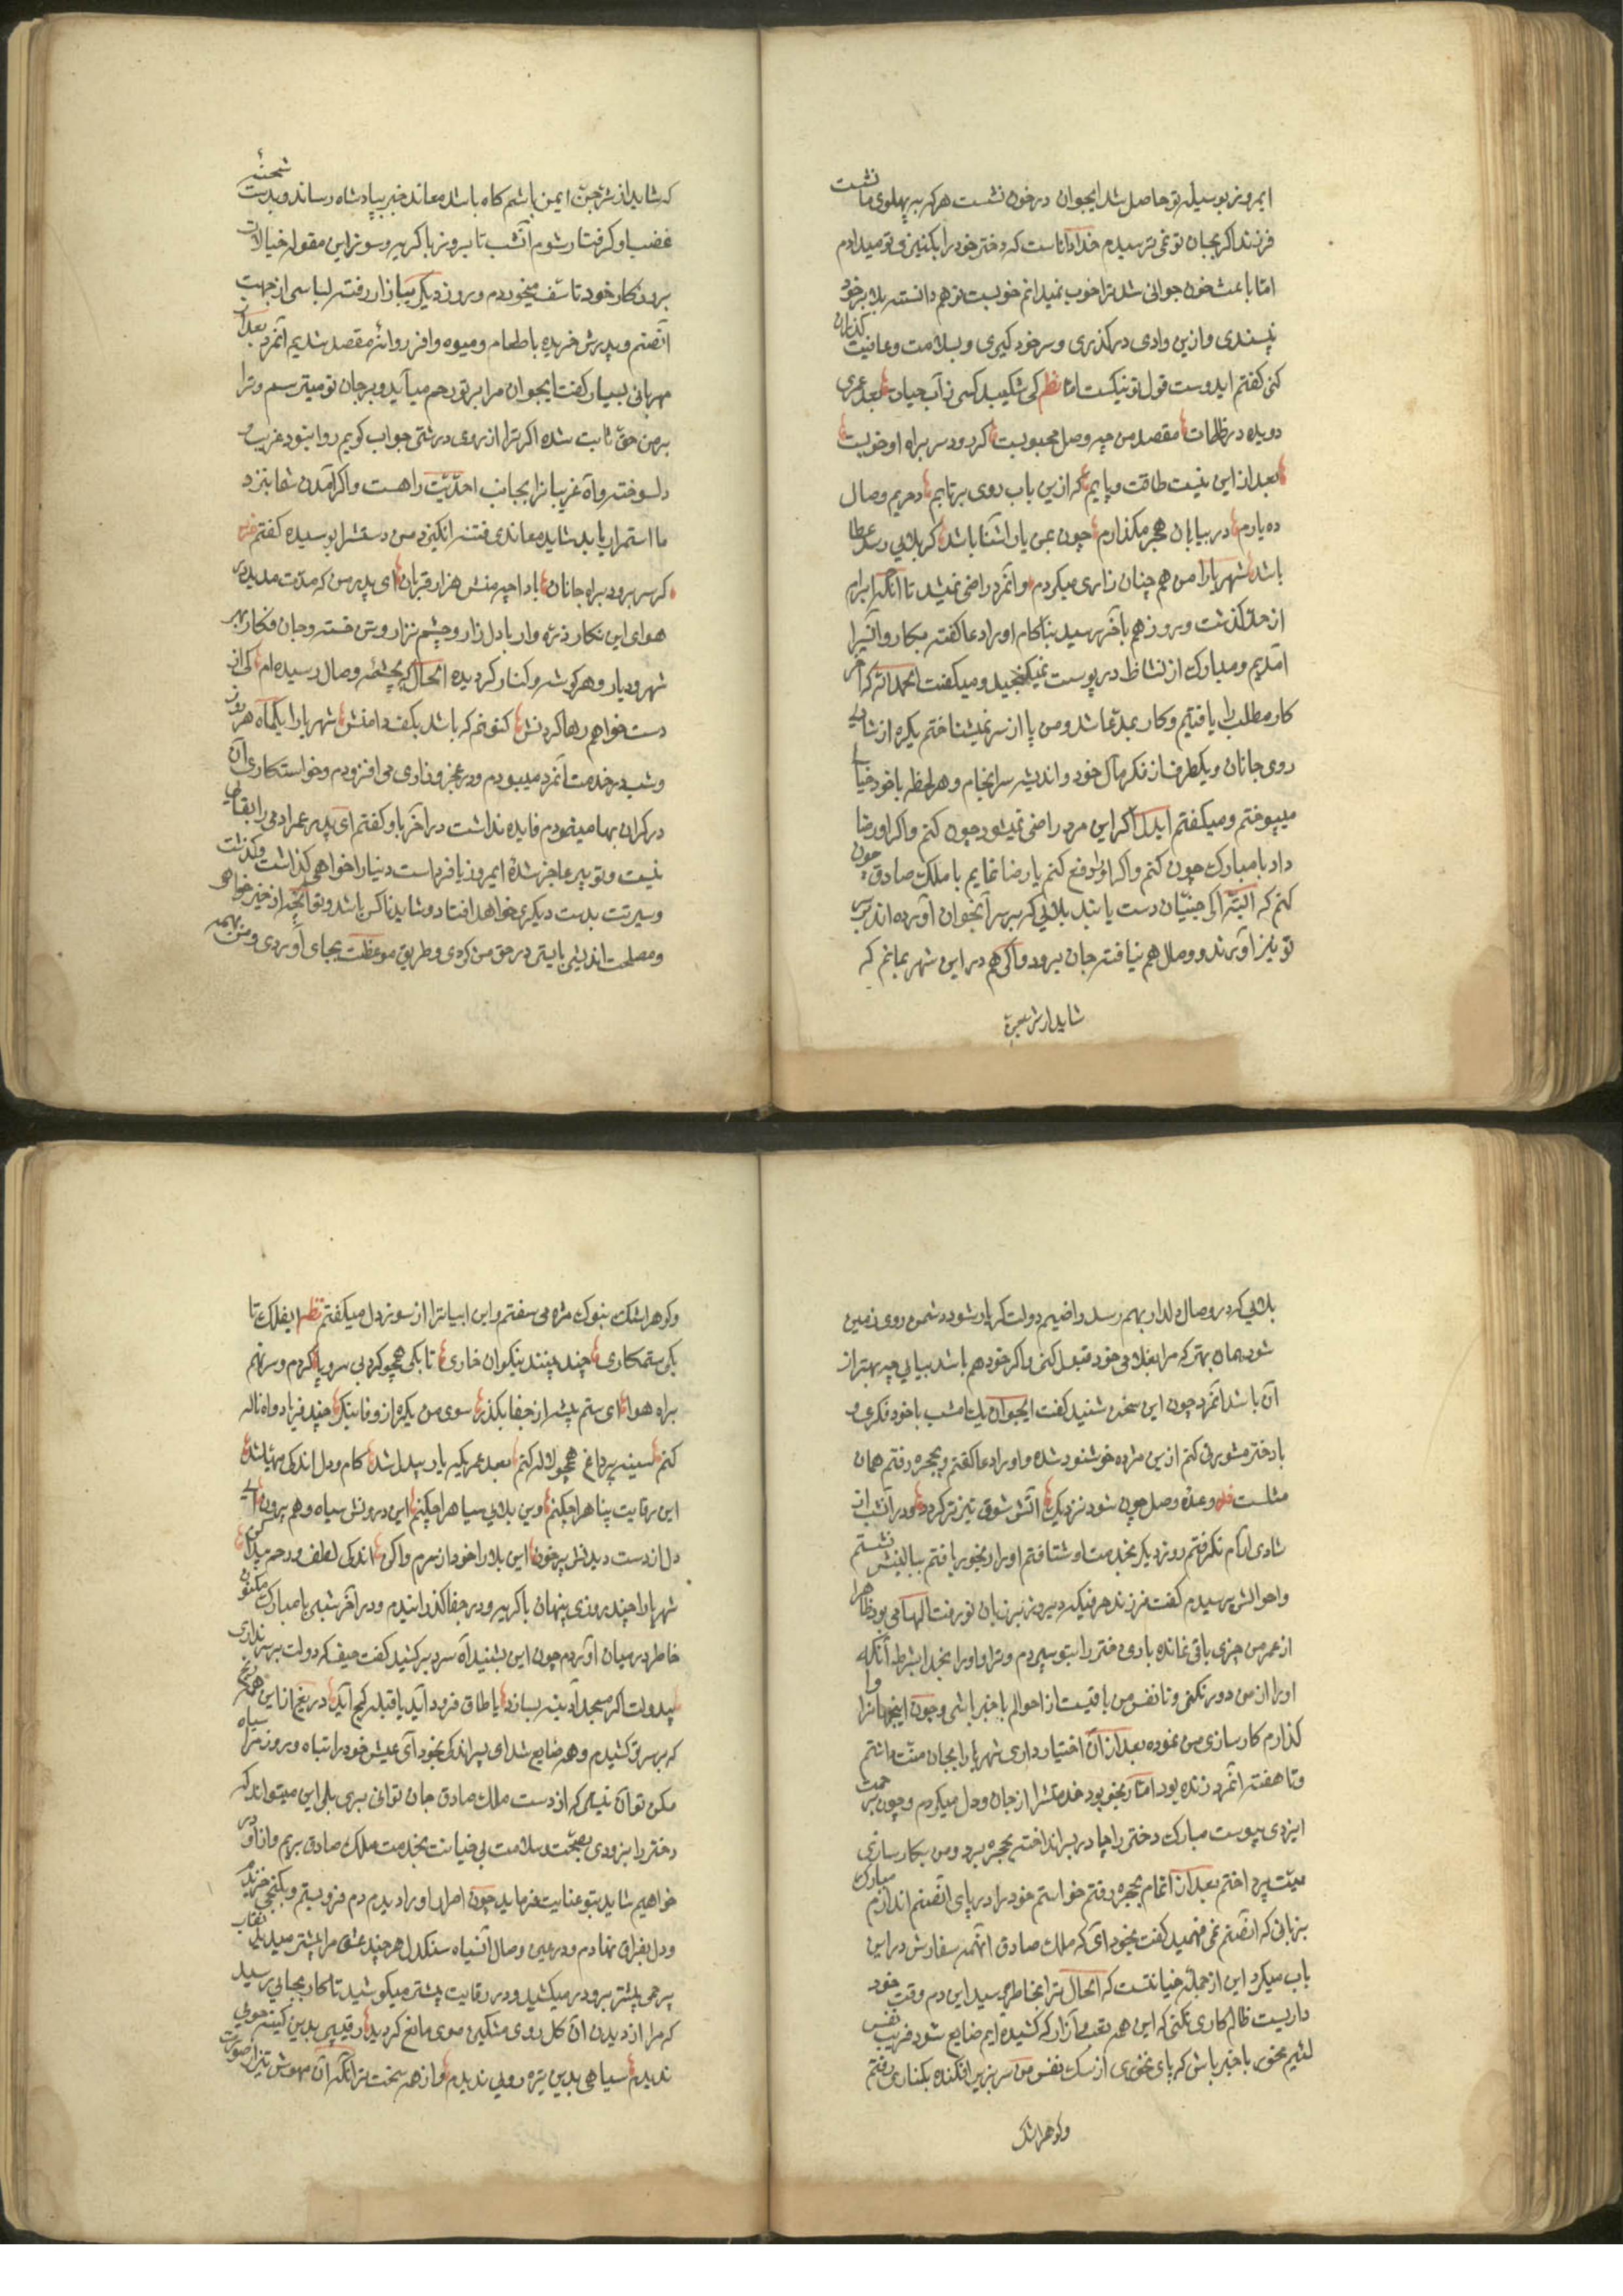 امروز بوسیله تو حاصل شد ایجوان در خون نشست هرکه به پهلوی ما نشست
فرزند اکر بجان تو نمی ترسیدم خدا داناست که دختر خود را بکنیزی تو میدادم
اما باعث خون جوانی شدن را خوب نمیدانم خوب نیست هم دانسته بلا بر خود
پسندی و ازین وادی درکذری و سر خود کیری و بسلامت و عافیت کذران
کنی کفتم ایدوست قول تو نیکست اما نظم کی شکیبد کسی ز آب حیات بعد عمری
دویده در ظلمات مقصد من چه وصل محبوبست کر رود سر براه او خوبست
بعد از این نیست طاقت و پایم کر ازین باب روی برتابم در حریم وصال
ده یارم در بیابان هجر مکذارم چون بمن یار آشنا باشد کر بلائی رسد عطا
باشد شهریارا من هم چنان زاری میکردم و آنمرد راضی نمیشد تا آنکه ابرام
از حد کذشت و روز هم بآخر رسید بناکام او را دعا کفته بکاروانسرا
آمدیم و مبارک از نشاط در پوست نمیکنجید و میکفت الحمدلله کر آخر
کار مطلب را یافتیم و کار بمدعا شد و من پا از سر نمیشناختم یکره از شادی
روی جانان و یکطرف از فکر مآل خود و اندیشه سرانجام و هر لحظه با خود خیال
میپوختم و میکفتم ایدل اکر این مرد راضی نمیشود چون کنم و اکر او رضا
داد با مبارک چون کنم و اکر او را دفع کنم یا رضا نمایم با ملک صادق چون
کنم که البته اکر جنیان دست یابند بلائی که بر سر آنجوان آورده اند بر سر
تو نیز آورند و وصال هم نیافته جان برود و اکر هم در این شهر بمانم که
شاید از شر جن
که شاید از شر جن ایمن باشم کاه باشد معاند خبر بپادشاه رساند و بدست شحنه
غضب او کرفتار شوم آنشب تا بروز با کریه و سوز این مقوله خیالات
بروزکار خود تأسف میخوردم و روز دیکر ببازار رفته لباسی از جهت
آنصنم و پدرش خریده با طعام و میوه وافر روانه مقصد شدیم آنمرد بعد از
مهربانی بسیار کفت ایجوان مرا بر تو رحم میآید و بر جان تو میترسم و ترا
بر من حق ثابت شده اکر ترا از روی درشتی جواب کویم روا نبود غریب و
دلسوخته و آه غریبانرا بجانب احدیت راهست و اکر آمدن شما بنزد
ما استمرار یابد شاید معاندی فتنه انکیزد من دستش را بوسیده کفتم فرد
کر سر برود براه جانان بادا چه منش هزار قربان ای پدر من که مدت مدید در
هوای این نکار ذره وار با دل زار و چشم نزار و تن خسته و جان فکار بهر
شهر و دیار و هر کوشه و کنار کردیده الحال که بچشمه وصال رسیده ام کی از
دست خواهم رها کردنش کنونم که باشد بکف دامنش شهریارا یکماه هر روز
و شب در خدمت آنمرد میبودم و در عجز و زاری می افزودم و خواستکاری آن
در کران بها مینمودم فایده نداشت در آخر باو کفتم ای پدر عمر آدمی را بقائی
نیست و تو پیر عاجز شده امروز یا فرداست دنیا را خواهی کذاشت و کذشت
و سیرتت بدست دیکری خواهد افتاد و شاید ناکس باشد و تو آنچه از خیرخواهی
و مصلحت اندیشی بایستی در حق من کردی و طریق موعظت بجای آوردی و من همه
بلائی که در وصال دلدار بهم رسد راضیم دولت کر یار شود دشمن روی زمین
شود همان بهتر که مرا بغلامی خود قبول کنی و اکر خود هم باشد بیائی چه بهتر از
آن باشد آنمرد چون این سخن شنید کفت ایجوان یک امشب با خود فکری و
با دختر مشورتی کنم ازین مژده خوشنود شده و او را دعا کفتم و بحجره رفتم همان
مثلست وعده وصل چون شود نزدیک آتش شوق تیزتر کردد و در آنشب از
شادی آرام نکرفتم روز دیکر بخدمت او شتافتم او را رنجور یافتم ببالینش نشستم
و احوالش پرسیدم کفت فرزند حرفیکه دیروز بر زبان تو رفت الهامی بود ظاهرا
از عمر من چیزی باقی نمانده باری دختر را بتو سپردم و ترا و او را بخدا بشرط آنکه
او را از من دور نکنی و تا نفس من باقیست از احوالم با خبر باشی و چون اینجهانرا وا
کذارم کارسازی من نموده بعد از آن اختیار داری شهریارا بجان منت داشتم
و تا هفته آنمرد زنده بود اما رنجور بود خدمتش را از جان و دل میکردم و چون برحمت
ایزدی پیوست مبارک دختر را چادر بسر انداخته بحجره برد و من بکارسازی
میت پرداختم بعد از اتمام بحجره رفتم خواستم خود را در پای آنصنم اندازم مبارک
بزبانی که آنصنم نمی فهمید کفت بخود آی که ملک صادق آنهمه سفارش در این
باب میکرد این از جمله خیانتست که الحال ترا بخاطر رسید این دم وقت خود
داریست ظالم کاری نکنی که این همه تعب و آزار که کشیده ایم ضایع شود فریب نفس
لئیم نخوری با خبر باش که پای نخوری از سک نفس من سر بزیر افکنده بکناری رفتم
و کوهر اشک
و کوهر اشک بنوک مژه می سفتم و این ابیاترا از سوز دل میکفتم نظم ایفلک تا
بکی ستمکاری چند پسند نیکوان خاری تا بکی همچو کردبی سر و پا کردم و سر نهم
براه هوا ای ستم پیشه از جفا بکذر سوی من یکره از وفا بنکر چند فریاد و آه ناله
کنم سینه پر داغ همچو لاله کنم بعد عمری که یار بیدل شد کام دل اندکی مهیا شد
این رقابت پناه را چکنم وین بلای سیاه را چکنم این درونش سیاه و هم برون ای
دل از دست دیدنش پر خون این بلا را خود از سرم واکن اندکی لطف و رحم پیدا کن
شهریارا چند روزی پنهان با کریه و درد جفا کذرانیدم و در آخر شبی با مبارک مکنون
خاطر در میان آوردم چون این بشنید آه سرد برکشید کفت حیف که دولت بر سر نداری
بیدولت اکر مسجد آدینه بسازد یا طاق فرود آید یا قبله کج آید دریغ از این همه رنج
که بر سر تو کشیدم و همه ضایع شد ای پسر اندکی بخود آی عیش خود را تباه و روز مرا سیاه
مکن تو آن نیستی که از دست ملک صادق جان توانی بری بلی این میتواند که
دختر را بزودی بصحت و سلامت بی خیانت بخدمت ملک صادق بریم و از او در
خواهیم شاید بتو عنایت فرماید چون اصرار او را دیدم دم فرو بستم و بکنجی خزیدم
و دل بفراق نهادم و در عین وصال آنسیاه سنکدل هر چند عشق مرا بیشتر میدید نقاب
بیرحمی بیشتر برو در میکشید و در رقابت بیشتر میکوشید تا کار بجائی رسید
که مرا از دیدن آن کل روی مشکین موی مانع کردید رقیبی بدین کینه جوئی
ندیدم سیاهی بدین تیره روئی ندیدم و از همه سخت تر آنکه آن مهوش نیز از صورت